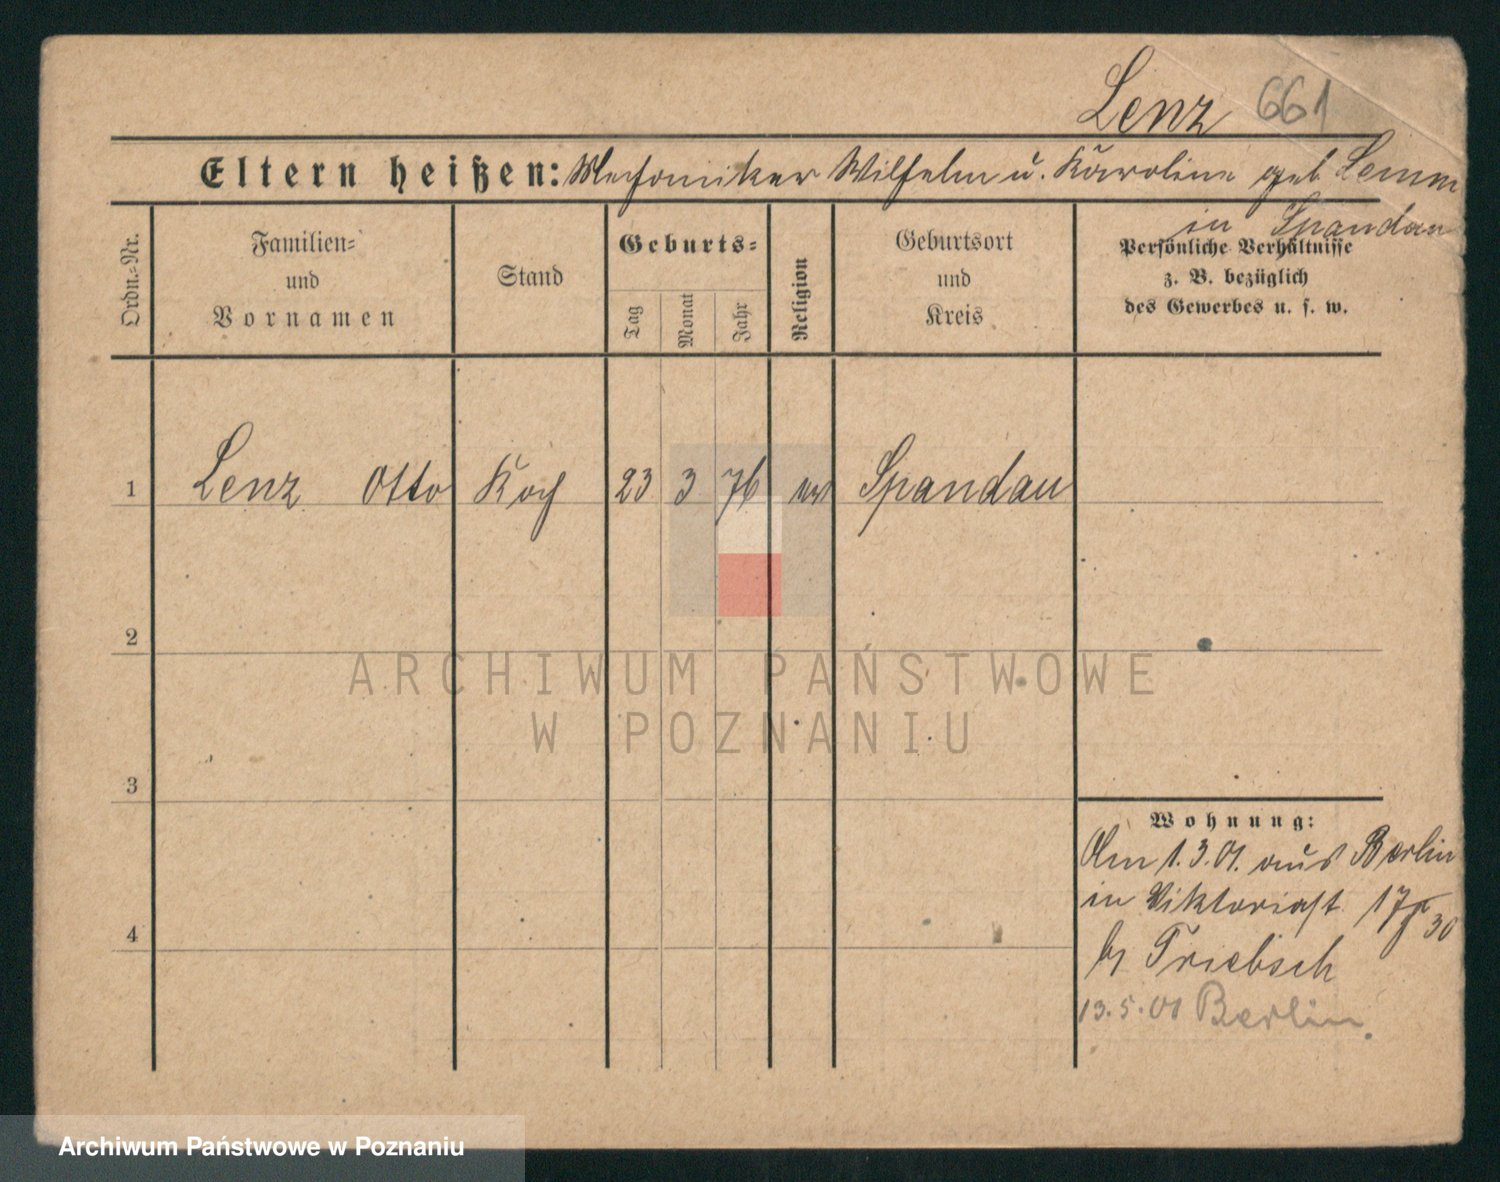 Lenz 661
Eltern heißen: Mechaniker Wilhelm u. Karoline geb Lemm
in Spandau
Ordn.-Nr.
Familien-
und
Vornamen
Stand
Geburts-
Tag
Monat
Jahr
Religion
Geburtsort
und
Kreis
Persönliche Verhältnisse
z. B. bezüglich
des Gewerbes u. s. w.
1 Lenz Otto Koch 23 3 76 ev Spandau
2
3
4
Wohnung:
Am 1.3.01. aus Berlin
in Viktoriast 17 30
b/ Triebsch
13.5.01 Berlin.
ARCHIWUM PAŃSTWOWE
W POZNANIU
Archiwum Państwowe w Poznaniu